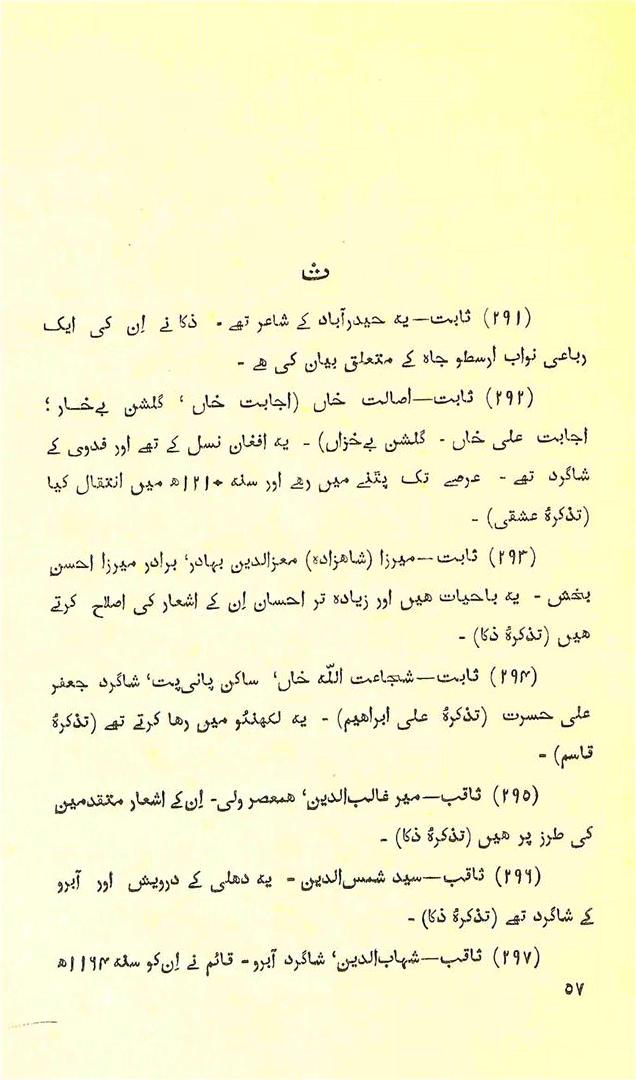 ث
(۲۹۱) ثابت—یہ حیدرآباد کے شاعر تھے - ذکا نے اِن کی ایک
رباعی نواب ارسطو جاہ کے متعلق بیان کی ھے -
(۲۹۲) ثابت—اصالت خاں (اجابت خاں ‘ گلشن بےخار ؛
اجابت علی خاں - گلشن بےخزاں) - یہ افغان نسل کے تھے اور فدوی کے
شاگرد تھے - عرصے تک پٹنے میں رھے اور سنہ ۱۲۱۰ھ میں انتقال کیا
(تذکرۂ عشقی) -
(۲۹۳) ثابت—میرزا (شاھزادہ) معزالدین بہادر‘ برادر میرزا احسن
بخش - یہ باحیات ھیں اور زیادہ تر احسان اِن کے اشعار کی اصلاح کرتے
ھیں (تذکرۂ ذکا) -
(۲۹۴) ثابت—شجاعت اللّٰہ خاں‘ ساکن پانی‌پت‘ شاگرد جعفر
علی حسرت (تذکرۂ علی ابراھیم) - یہ لکھنئو میں رھا کرتے تھے (تذکرۂ
قاسم) -
(۲۹۵) ثاقب—میر غالب‌الدین‘ ھمعصر ولی- اِن‌کے اشعار متقدمین
کی طرز پر ھیں (تذکرۂ ذکا) -
(۲۹۶) ثاقب—سید شمس‌الدین - یہ دھلی کے درویش اور آبرو
کے شاگرد تھے (تذکرۂ ذکا) -
(۲۹۷) ثاقب—شہاب‌الدین‘ شاگرد آبرو - قائم نے اِن‌کو سنہ ۱۱۶۴ھ
۵۷